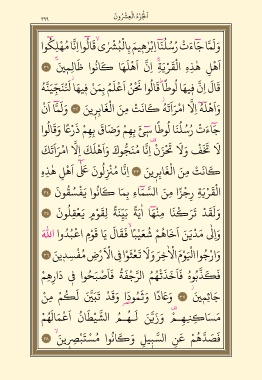 الجزء العشرون
٣٩٩
وَلَمَّا جَاءَتْ رُسُلُنَا اِبْرٰهِيمَ بِالْبُشْرٰى قَالُوا اِنَّا مُهْلِكُوا
اَهْلِ هٰذِهِ الْقَرْيَةِ اِنَّ اَهْلَهَا كَانُوا ظَالِمِينَ ٣١
قَالَ اِنَّ فِيهَا لُوطًا قَالُوا نَحْنُ اَعْلَمُ بِمَنْ فِيهَا لَنُنَجِّيَنَّهُ
وَاَهْلَهُ اِلَّا امْرَاَتَهُ كَانَتْ مِنَ الْغَابِرِينَ ٣٢ وَلَمَّا اَنْ
جَاءَتْ رُسُلُنَا لُوطًا سِيءَ بِهِمْ وَضَاقَ بِهِمْ ذَرْعًا وَقَالُوا
لَا تَخَفْ وَلَا تَحْزَنْ اِنَّا مُنَجُّوكَ وَاَهْلَكَ اِلَّا امْرَاَتَكَ
كَانَتْ مِنَ الْغَابِرِينَ ٣٣ اِنَّا مُنْزِلُونَ عَلٰى اَهْلِ هٰذِهِ
الْقَرْيَةِ رِجْزًا مِنَ السَّمَاءِ بِمَا كَانُوا يَفْسُقُونَ ٣٤
وَلَقَدْ تَرَكْنَا مِنْهَا اٰيَةً بَيِّنَةً لِقَوْمٍ يَعْقِلُونَ ٣٥
وَاِلٰى مَدْيَنَ اَخَاهُمْ شُعَيْبًا فَقَالَ يَا قَوْمِ اعْبُدُوا اللّٰهَ
وَارْجُوا الْيَوْمَ الْاٰخِرَ وَلَا تَعْثَوْا فِي الْاَرْضِ مُفْسِدِينَ ٣٦
فَكَذَّبُوهُ فَاَخَذَتْهُمُ الرَّجْفَةُ فَاَصْبَحُوا فِي دَارِهِمْ
جَاثِمِينَ ٣٧ وَعَادًا وَثَمُودَا وَقَدْ تَبَيَّنَ لَكُمْ مِنْ
مَسَاكِنِهِمْ وَزَيَّنَ لَهُمُ الشَّيْطَانُ اَعْمَالَهُمْ
فَصَدَّهُمْ عَنِ السَّبِيلِ وَكَانُوا مُسْتَبْصِرِينَ ٣٨